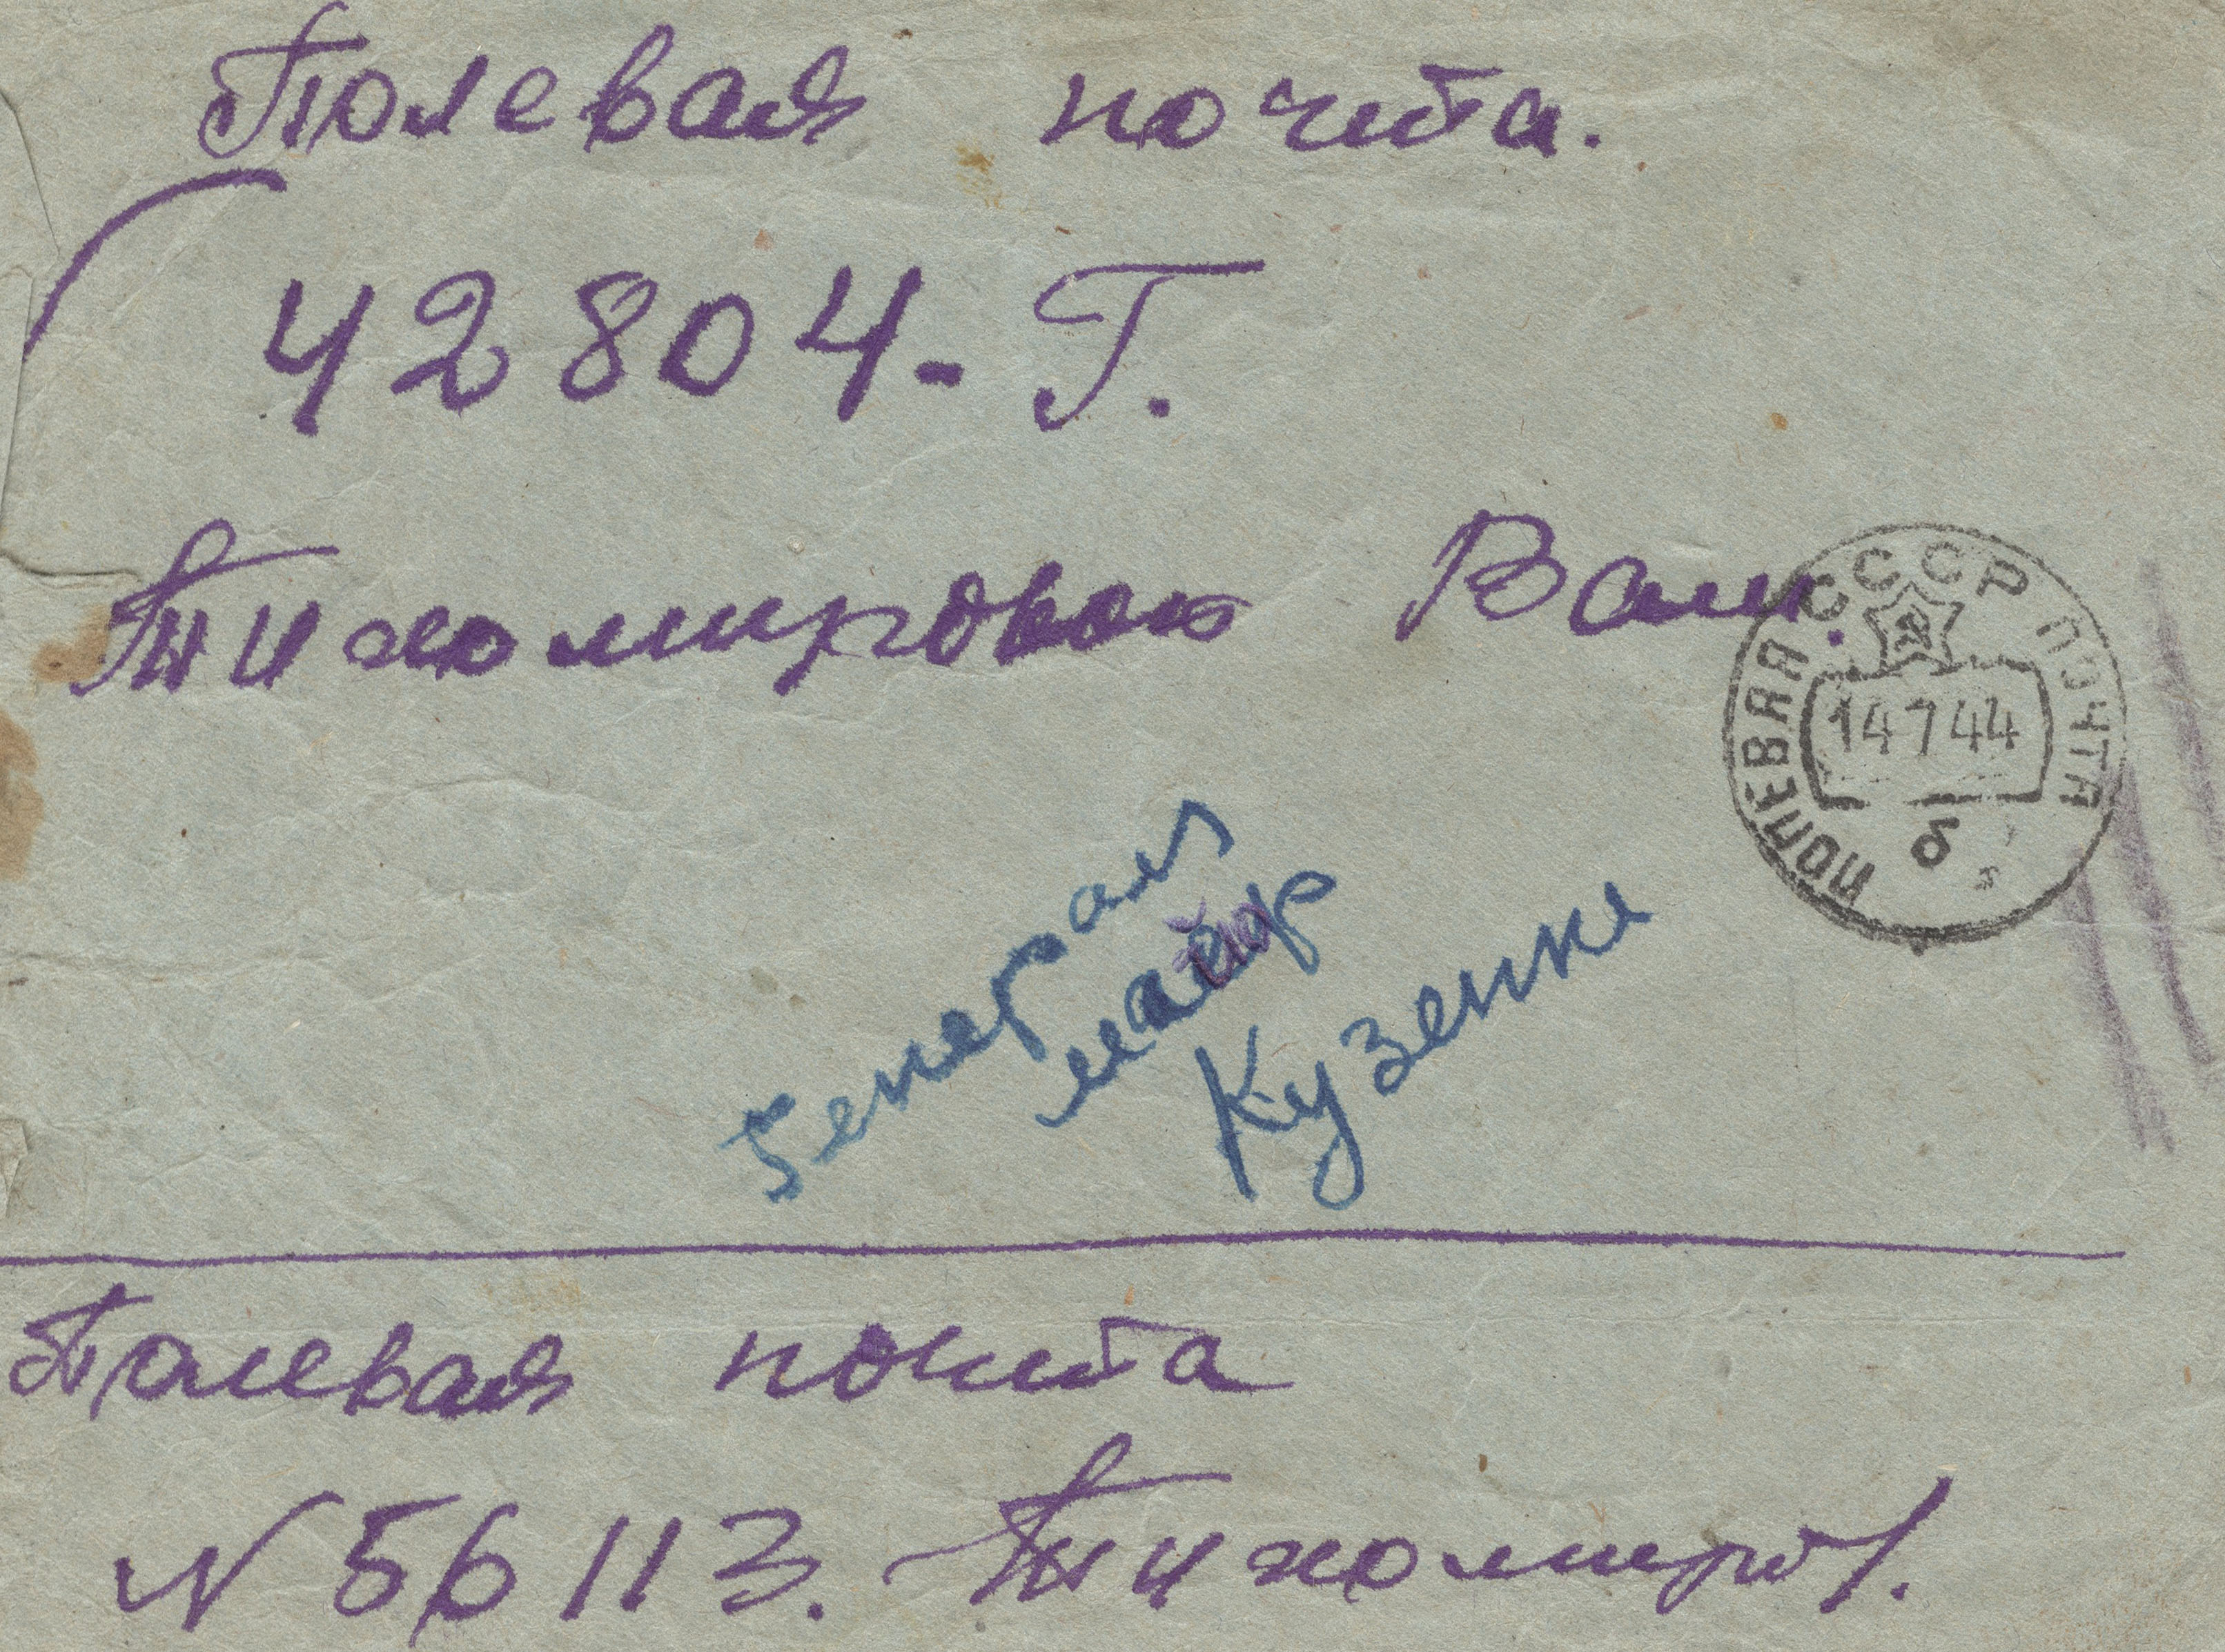 Полевая почта.
42804-Г.
Тихомировой Вал.
ПОЛЕВАЯ ПОЧТА
СССР
14 7 44
б
Генерал
майор
Кузенке
Полевая почта
N 56113. Тихомиров.